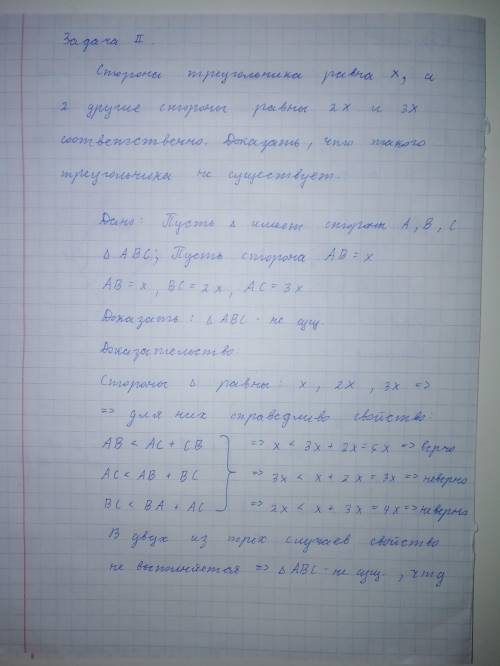 Задача II.
Сторона треугольника равна x, а
2 другие стороны равны 2x и 3x
соответственно. Доказать, что такого
треугольника не существует.
Дано: Пусть Δ имеет стороны A, B, C
Δ ABC; Пусть сторона AB = x
AB = x, BC = 2x, AC = 3x
Доказать: Δ ABC - не сущ.
Доказательство.
Стороны Δ равны: x, 2x, 3x =>
=> для них справедливо свойство:
AB < AC + CB => x < 3x + 2x = 5x => верно
AC < AB + BC => 3x < x + 2x = 3x => неверно
BC < BA + AC => 2x < x + 3x = 4x => неверно
В двух из трех случаев свойство
не выполняется => Δ ABC - не сущ., чтд